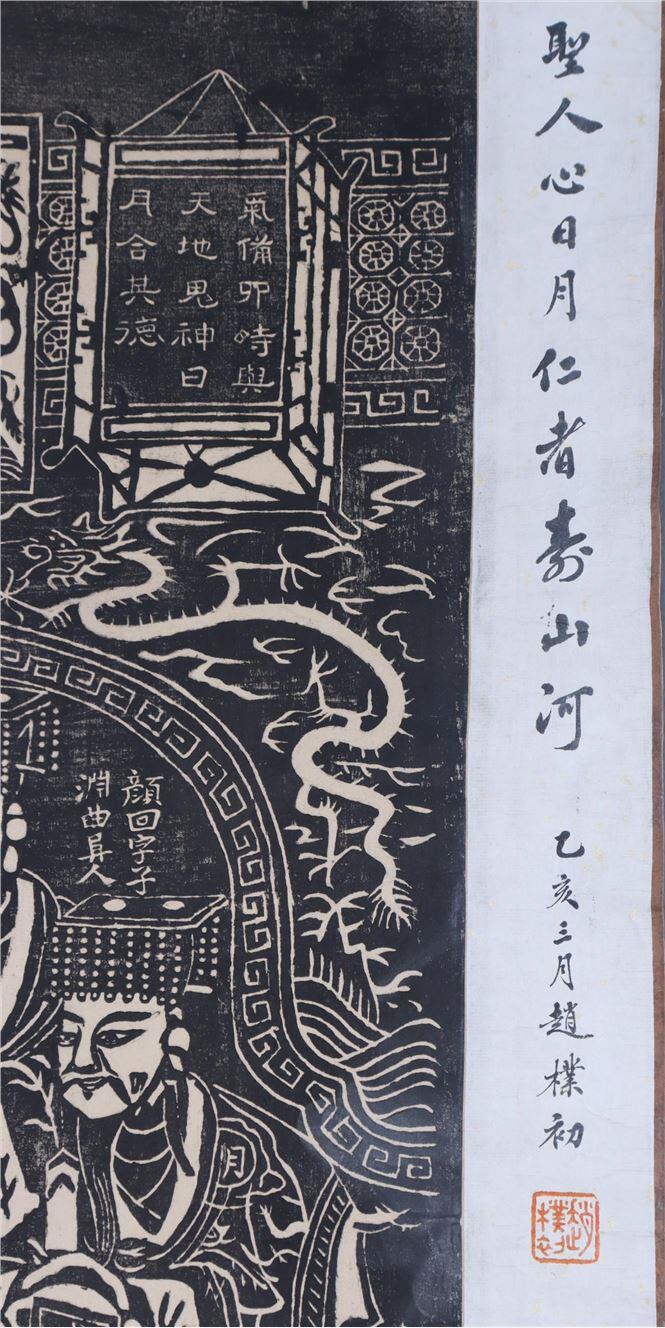 聖人心日月仁者壽山河
乙亥三月趙樸初
氣備四時與
天地鬼神日
月合其德
顏回字子
淵曲阜人
月
趙樸初